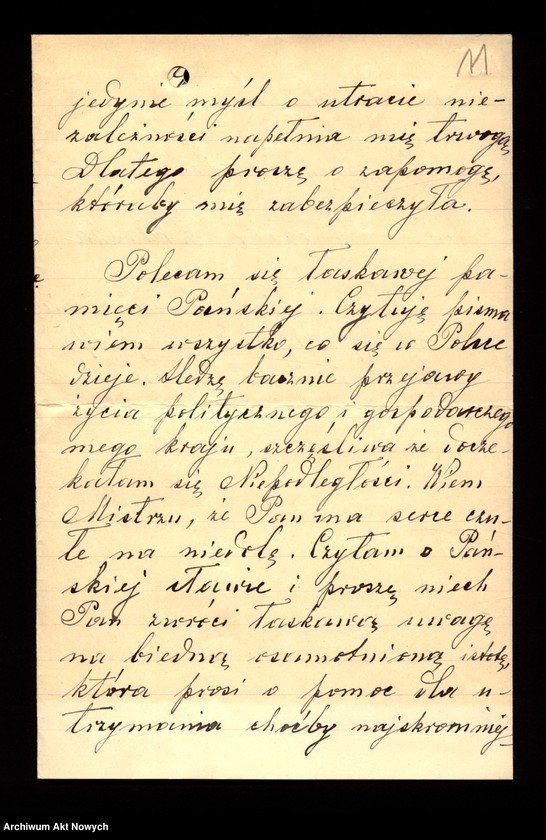 9
11
jedynie myśl o utracie nie-
zależności napełnia mię trwogą,
Dlatego proszę o zapomogę,
któraby mię zabezpieczyła.
Polecam się łaskawej pa-
mięci Pańskiej. Czytuję pisma
wiem wszystko, co się w Polsce
dzieje. Śledzę bacznie przejawy
życia politycznego i gospodarczego
mego kraju, szczęśliwa że docze-
kałam się Niepodległości. Wiem
Mistrzu, że Pan ma serce czu-
łe na niedolę. Czytam o Pań-
skiej sławie i proszę niech
Pan zwróci łaskawą uwagę
na biedną osamotnioną istotę,
która prosi o pomoc dla u-
trzymania choćby najskromniej-
Archiwum Akt Nowych